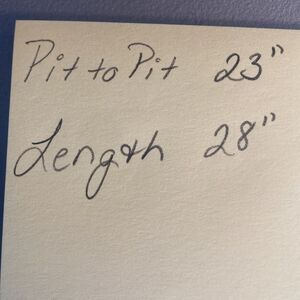 Pit to Pit 23"
Length 28"